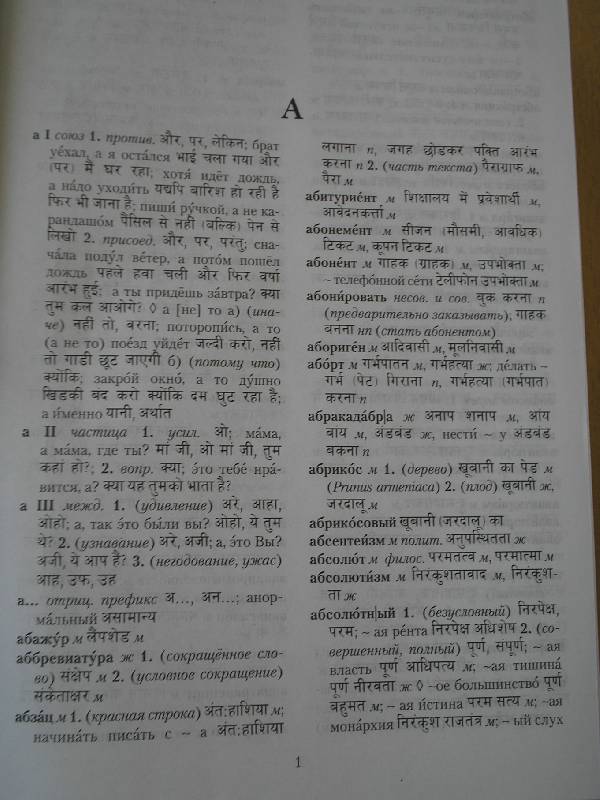 А
а I союз 1. против. और, पर, लेकिन; брат
уе́хал, а я оста́лся भाई चला गया और
(पर) मैं घर रहा; хотя́ идёт дождь,
а на́до уходи́ть यद्यपि बारिश हो रही है
फिर भी जाना है; пиши́ ру́чкой, а не ка-
рандашо́м पेंसिल से नहीं (बल्कि) पेन से
लिखो 2. присоед. और, पर, परंतु; сна-
ча́ла поду́л ве́тер, а пото́м пошёл
дождь पहले हवा चली और फिर वर्षा
आरंभ हुई; а ты придёшь за́втра? क्या
तुम कल आओगे? ◊ а [не] то а) (ина-
че) नहीं तो, वरना; поторопи́сь, а то
(а не то) по́езд уйдёт जल्दी करो, नहीं
तो गाडी छूट जाएगी б) (потому что)
क्योंकि; закро́й окно́, а то ду́шно
खिडकी बंद करो क्योंकि दम घुट रहा है;
а и́менно यानी, अर्थात
а II частица 1. усил. ओ; ма́ма,
а ма́ма, где ты? मां जी, ओ मां जी, तुम
कहां हो?; 2. вопр. क्या; э́то тебе́ нра́-
вится, а? क्या यह तुमको भाता है?
а III межд. 1. (удивление) अरे, आहा,
ओहो; а, так э́то бы́ли вы? ओहो, ये तुम
थे? 2. (узнавание) अरे, अजी; а, э́то Вы?
अजी, ये आप हैं? 3. (негодование, ужас)
आह, उफ, उह
а... отриц. префикс अ..., अन...; анор-
ма́льный असामान्य
абажу́р м लैंपशेड м
аббревиату́ра ж 1. (сокращённое сло-
во) संक्षेप м 2. (условное сокращение)
संकेताक्षर м
абза́ц м 1. (красная строка) अंत:हाशिया м;
начина́ть писа́ть с ~ а अंत:हाशिया
लगाना п, जगह छोडकर पंक्ति आरंभ
करना п 2. (часть текста) पैराग्राफ м,
पैरा м
абитурие́нт м शिक्षालय में प्रवेशार्थी м,
आवेदनकर्त्ता м
абонеме́нт м सीजन (मौसमी, आवधिक)
टिकट м, कूपन टिकट м
абоне́нт м गाहक (ग्राहक) м, उपभोक्ता м;
~ телефо́нной се́ти टेलीफोन उपभोक्ता м
абони́ровать несов. и сов. बुक करना п
(предварительно заказывать); गाहक
बनना нп (стать абонентом)
абориге́н м आदिवासी м, मूलनिवासी м
або́рт м गर्भपातन м, गर्भहत्या ж; де́лать ~
गर्भ (पेट) गिराना п, गर्भहत्या (गर्भपात)
करना п
абракада́бр|а ж अनाप शनाप м, आंय
बांय м, अंडबंड ж, нести́ ~ у अंडबंड
बकना п
абрико́с м 1. (дерево) खूबानी का पेड м
(Prunus armeniaca) 2. (плод) खूबानी ж,
जरदालू м
абрико́совый खूबानी (जरदालू) का
абсентеи́зм м полит. अनुपस्थितता ж
абсолю́т м филос. परमतत्व м, परमात्मा м
абсолюти́зм м निरंकुशतावाद м, निरंकुश-
ता ж
абсолю́тн|ый 1. (безусловный) निरपेक्ष,
परम; ~ ая ре́нта निरपेक्ष अधिशेष 2. (со-
вершенный, полный) पूर्ण, संपूर्ण; ~ ая
власть पूर्ण आधिपत्य м; ~ая тишина́
पूर्ण नीरवता ж ◊ ~ое большинство́ पूर्ण
बहुमत м; ~ ая и́стина परम सत्य м; ~ая
мона́рхия निरंकुश राजतंत्र м; ~ ый слух
1